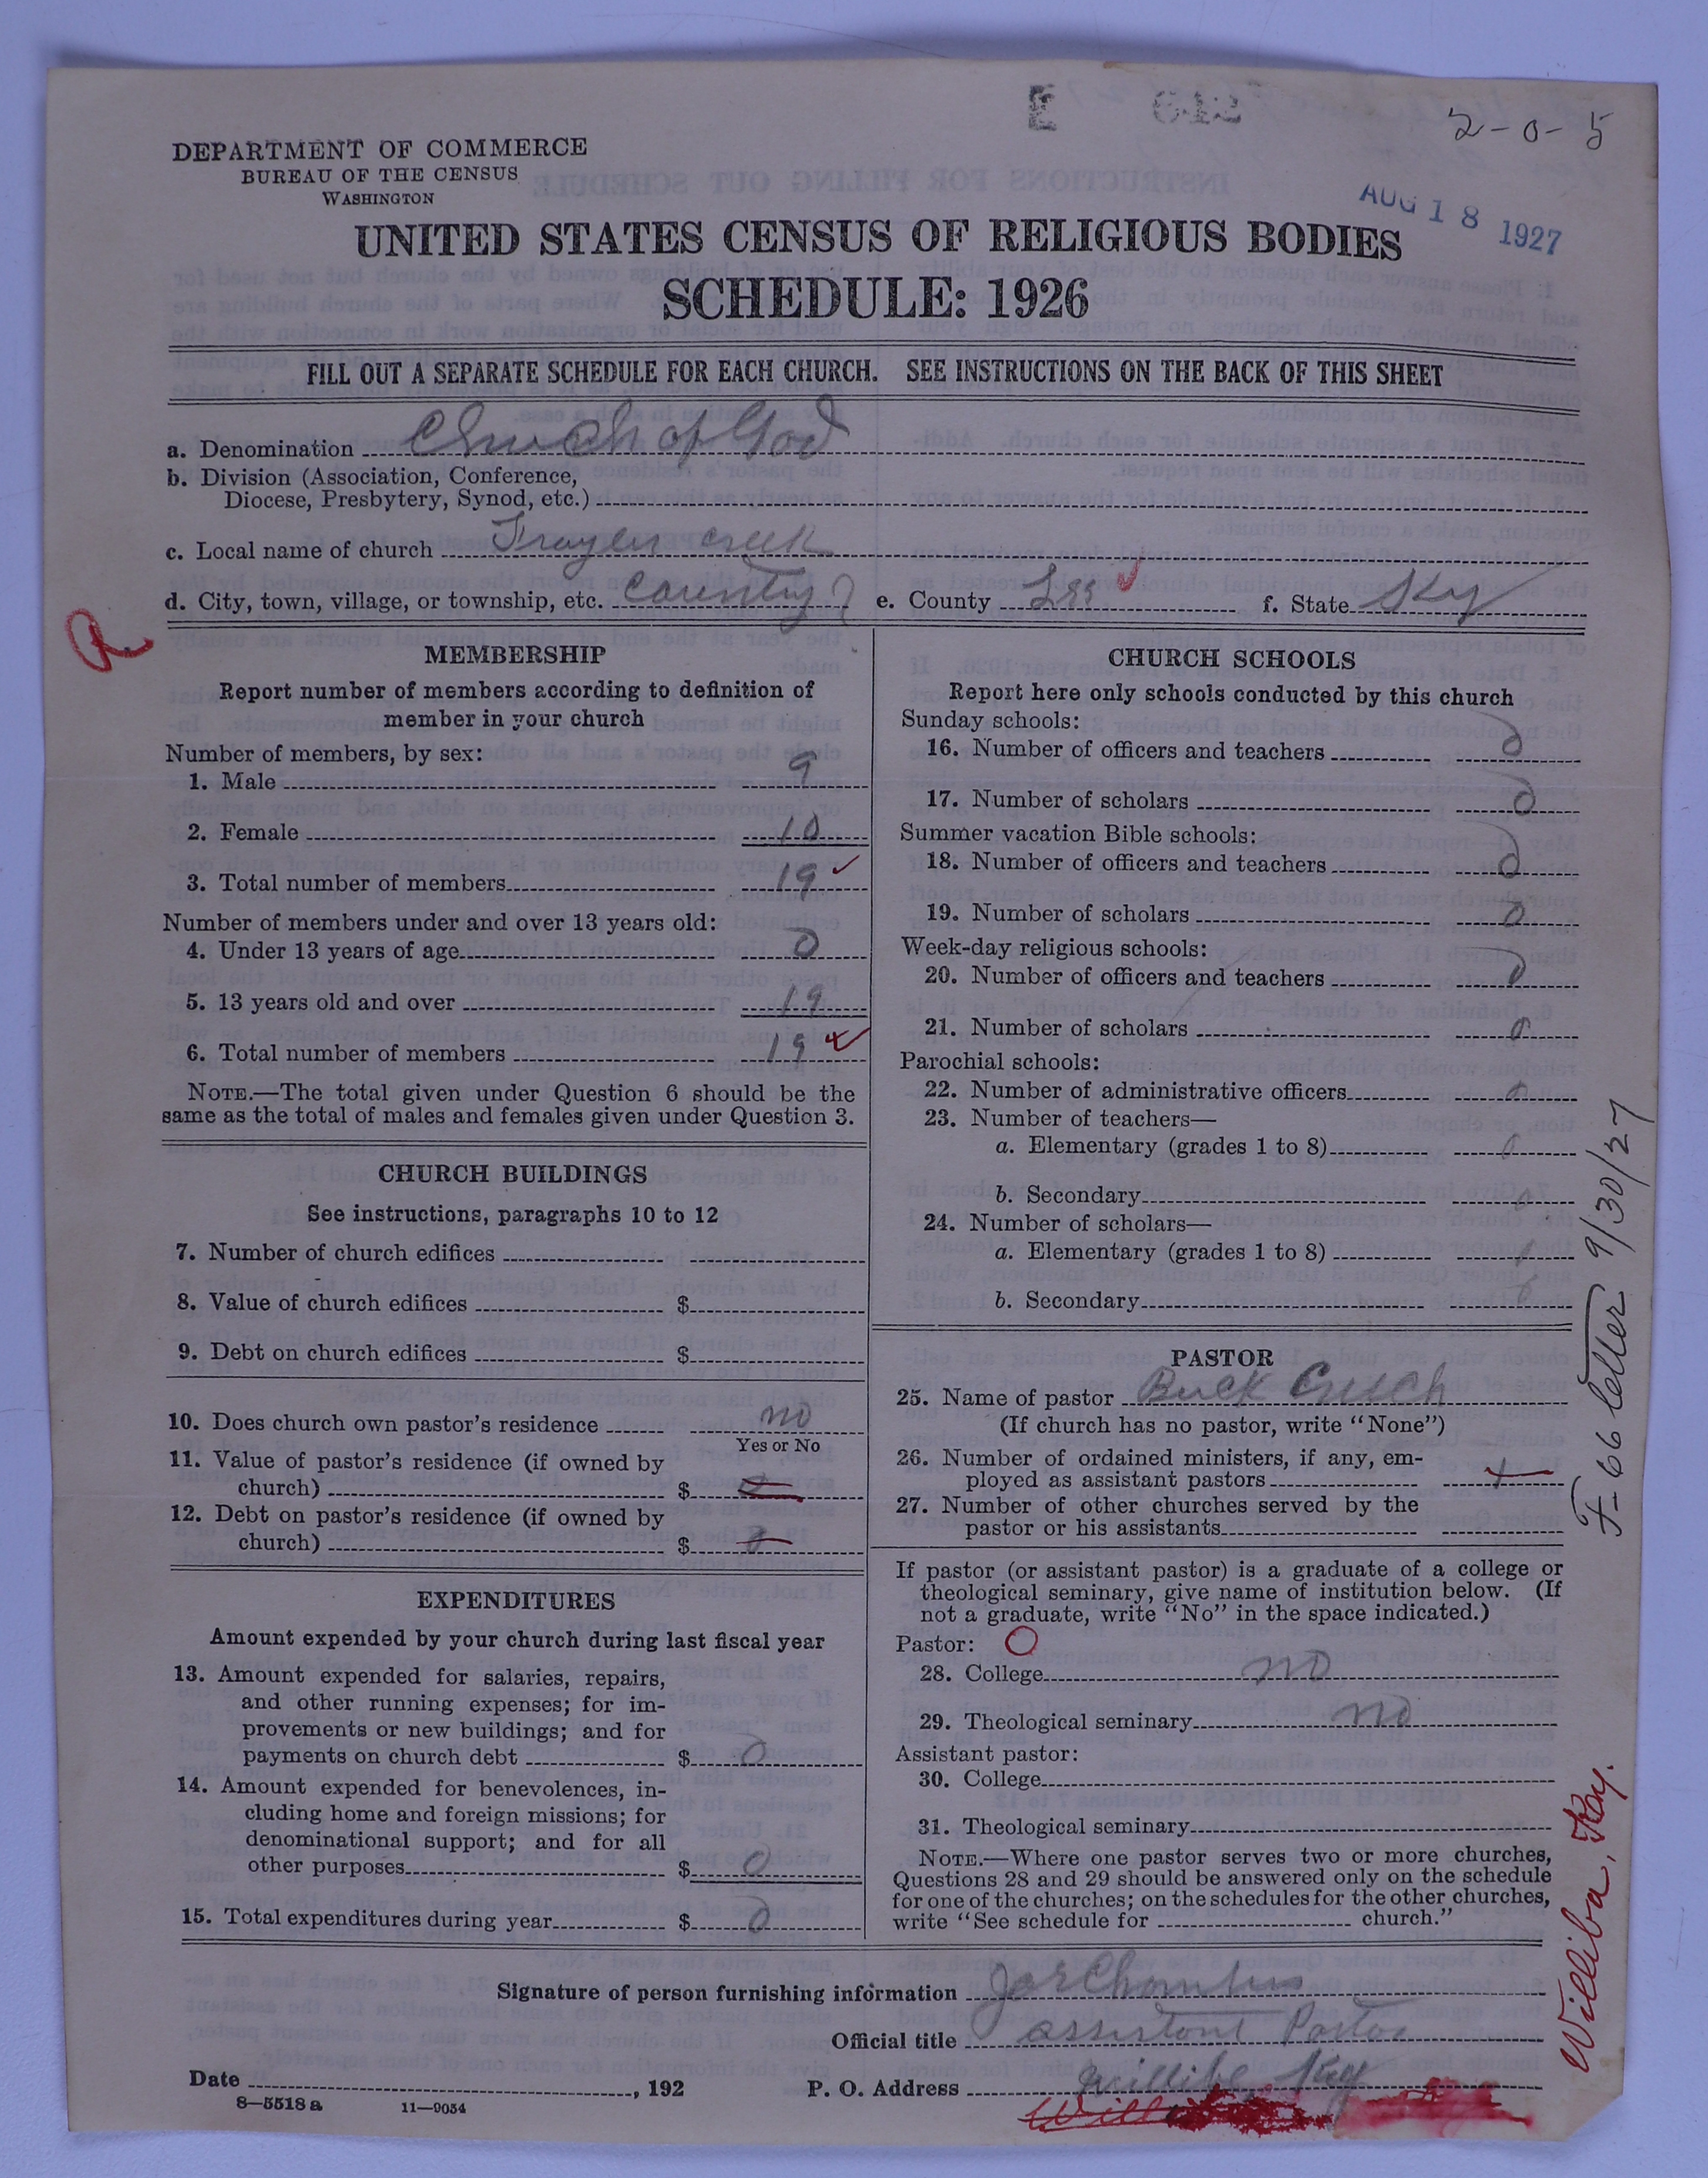 E 642
2-0-5
DEPARTMENT OF COMMERCE
BUREAU OF THE CENSUS
WASHINGTON
AUG 18 1927
UNITED STATES CENSUS OF RELIGIOUS BODIES
SCHEDULE: 1926
FILL OUT A SEPARATE SCHEDULE FOR EACH CHURCH. SEE INSTRUCTIONS ON THE BACK OF THIS SHEET
a. Denomination Church of God
b. Division (Association, Conference,
Diocese, Presbytery, Synod, etc.)
c. Local name of church creek
d. City, town, village, or township, etc. e. County Lee f. State Ky
MEMBERSHIP
Report number of members according to definition of
member in your church
Number of members, by sex:
1. Male 9
2. Female 10
3. Total number of members 19
Number of members under and over 13 years old:
4. Under 13 years of age 0
5. 13 years old and over 19
6. Total number of members 19
NOTE.—The total given under Question 6 should be the
same as the total of males and females given under Question 3.
CHURCH BUILDINGS
See instructions, paragraphs 10 to 12
7. Number of church edifices
8. Value of church edifices $
9. Debt on church edifices $
10. Does church own pastor's residence no
Yes or No
11. Value of pastor's residence (if owned by
church) $ 0
12. Debt on pastor's residence (if owned by
church) $ 0
EXPENDITURES
Amount expended by your church during last fiscal year
13. Amount expended for salaries, repairs,
and other running expenses; for im-
provements or new buildings; and for
payments on church debt $ 0
14. Amount expended for benevolences, in-
cluding home and foreign missions; for
denominational support; and for all
other purposes $ 0
15. Total expenditures during year $ 0
CHURCH SCHOOLS
Report here only schools conducted by this church
Sunday schools:
16. Number of officers and teachers 0
17. Number of scholars 0
Summer vacation Bible schools:
18. Number of officers and teachers 0
19. Number of scholars 0
Week-day religious schools:
20. Number of officers and teachers 0
21. Number of scholars 0
Parochial schools:
22. Number of administrative officers 0
23. Number of teachers—
a. Elementary (grades 1 to 8) 0
b. Secondary 0
24. Number of scholars—
a. Elementary (grades 1 to 8)
b. Secondary 0
PASTOR
25. Name of pastor Buck Creech
(If church has no pastor, write "None")
26. Number of ordained ministers, if any, em-
ployed as assistant pastors 1
27. Number of other churches served by the
pastor or his assistants
If pastor (or assistant pastor) is a graduate of a college or
theological seminary, give name of institution below. (If
not a graduate, write "No" in the space indicated.)
Pastor: O
28. College no
29. Theological seminary no
Assistant pastor:
30. College
31. Theological seminary
NOTE.—Where one pastor serves two or more churches,
Questions 28 and 29 should be answered only on the schedule
for one of the churches; on the schedules for the other churches,
write "See schedule for church."
F-66 letter 9/30/27
Williba, Ky.
Signature of person furnishing information Joe
Official title assistant Pastor
Date , 192 P. O. Address Williba, Ky
8—5518a 11—9054